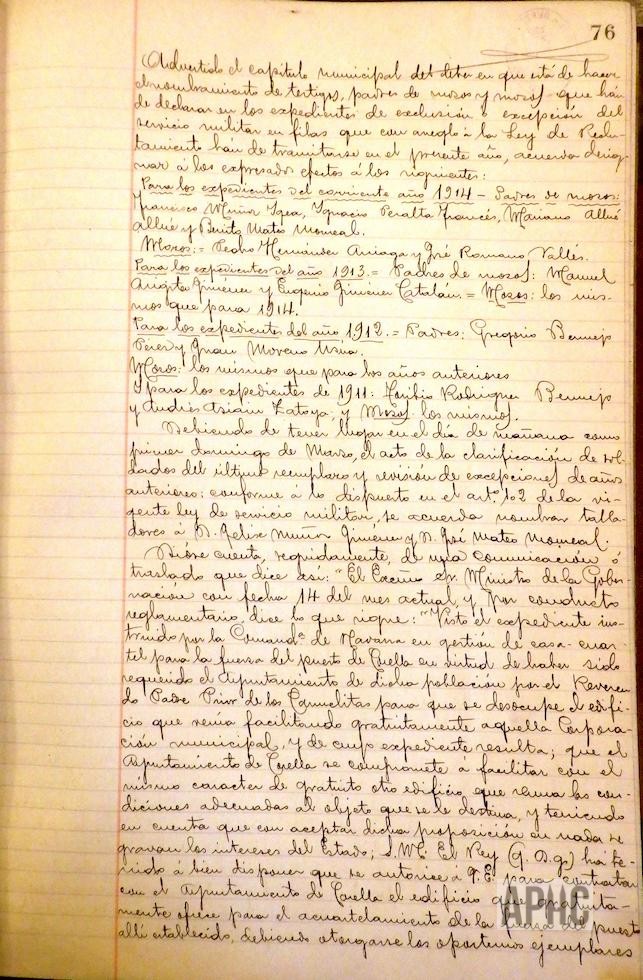 76
Advertido el capitulo municipal del deber en que está de hacer
el nombramiento de testigos, padres de mozos y mozos que han
de declarar en los expedientes de exclusión o excepción del
servicio militar en filas que con arreglo á la Ley de Reclu-
tamiento han de tramitarse en el presente año, acuerda desig-
nar á los expresados efectos á los siguientes:
Para los expedientes del corriente año 1914 - Padres de mozos:
Francisco Muñoz Igea, Ignacio Peralta Francés, Mariano Allué
Allué y Benito Mateo Monreal.
Mozos: = Pedro Hernández Arriaga y José Romano Vallés.
Para los expedientes del año 1913. = Padres de mozos: Manuel
Jiménez y Eugenio Jiménez Catalán. = Mozos: los mis-
mos que para 1914.
Para los expedientes del año 1912. = Padres: Gregorio Bermejo
Pérez y Juan Moreno
Mozos: los mismos que para los años anteriores
Y para los expedientes de 1911: Toribio Rodriguez Bermejo
y Andrés Zatoya; y Mozos los mismos.
Debiendo de tener lugar en el día de mañana como
primer domingo de Marzo, el acto de la clasificación de sol-
dados del último reemplazo y revisión de excepciones de años
anteriores: conforme á lo dispuesto en el artº 102 de la vi-
gente ley de servicio militar, se acuerda nombrar talla-
dores á D. Felix Muñoz Jiménez y D. José Mateo Monreal.
Dióse cuenta, seguidamente, de una comunicación ó
traslado que dice así: "El Excmo Sr. Ministro de la Gober-
nacion con fecha 14 del mes actual, y por conducto
reglamentario, dice lo que sigue: "Visto el expediente ins-
truido por la Comandª de Navarra en gestión de casa-cuar-
tel para la fuerza del puesto de Corella en virtud de haber sido
requerido el Ayuntamiento de dicha población por el Reveren-
do Padre Prior de los Carmelitas para que se desocupe el edifi-
cio que venía facilitando gratuitamente aquella Corpora-
ción municipal, y de cuyo expediente resulta; que el
Ayuntamiento de Corella se compromete á facilitar con el
mismo caracter de gratuito otro edificio que reuna las con-
diciones adecuadas al objeto que se le destina, y teniendo
en cuenta que con aceptar dicha proposición en nada se
gravan los intereses del Estado; S. M. El Rey (q. D. g.) ha te-
nido á bien disponer que se autorice á V. E. para contratar
con el Ayuntamiento de Corella el edificio que gratuita-
mente ofrece para el acuartelamiento de la fuerza del puesto
allí establecido, debiendo otorgarse los oportunos ejemplares
APHC